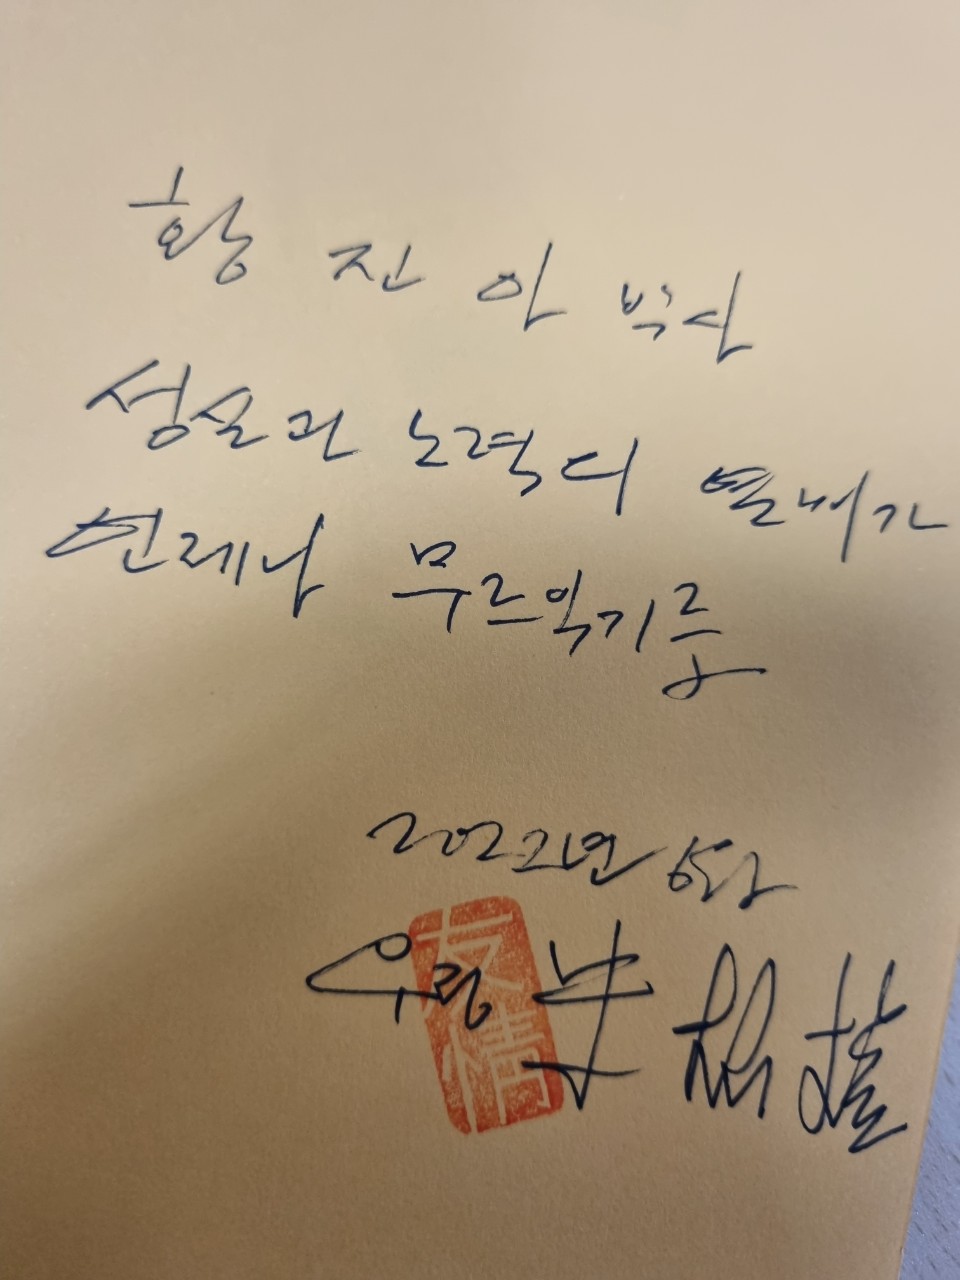 황진아 박사
성실과 노력의 열매가
언제나 무르익기를
2022년 5월
友情